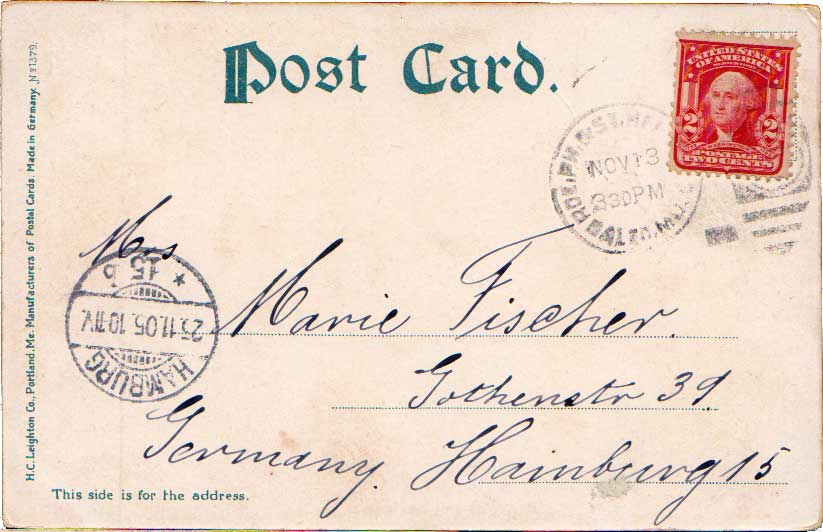 Post Card.
UNITED STATES
OF AMERICA
2 2
POSTAGE
TWO CENTS
NOV 13
330PM
Mrs
Marie Fischer.
Gothenstr 39
Germany. Hamburg 15
HAMBURG
25.11.05. 10-11V.
* 15 b
This side is for the address.
H.C. Leighton Co., Portland, Me. Manufacturers of Postal Cards. Made in Germany. No 1379.